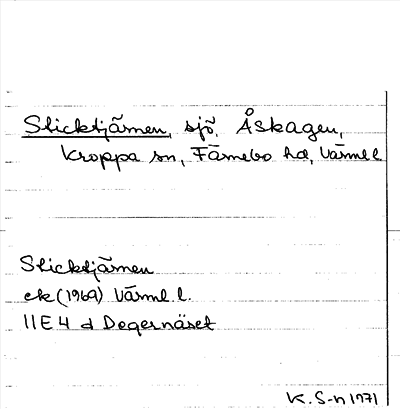 Sticktjärnen, sjö. Åskagen,
Kroppa sn, Färnebo hd, Värml l
Sticktjärnen
ek (1969) Värml. l.
11E 4 d Degernäset
K. S-n 1971